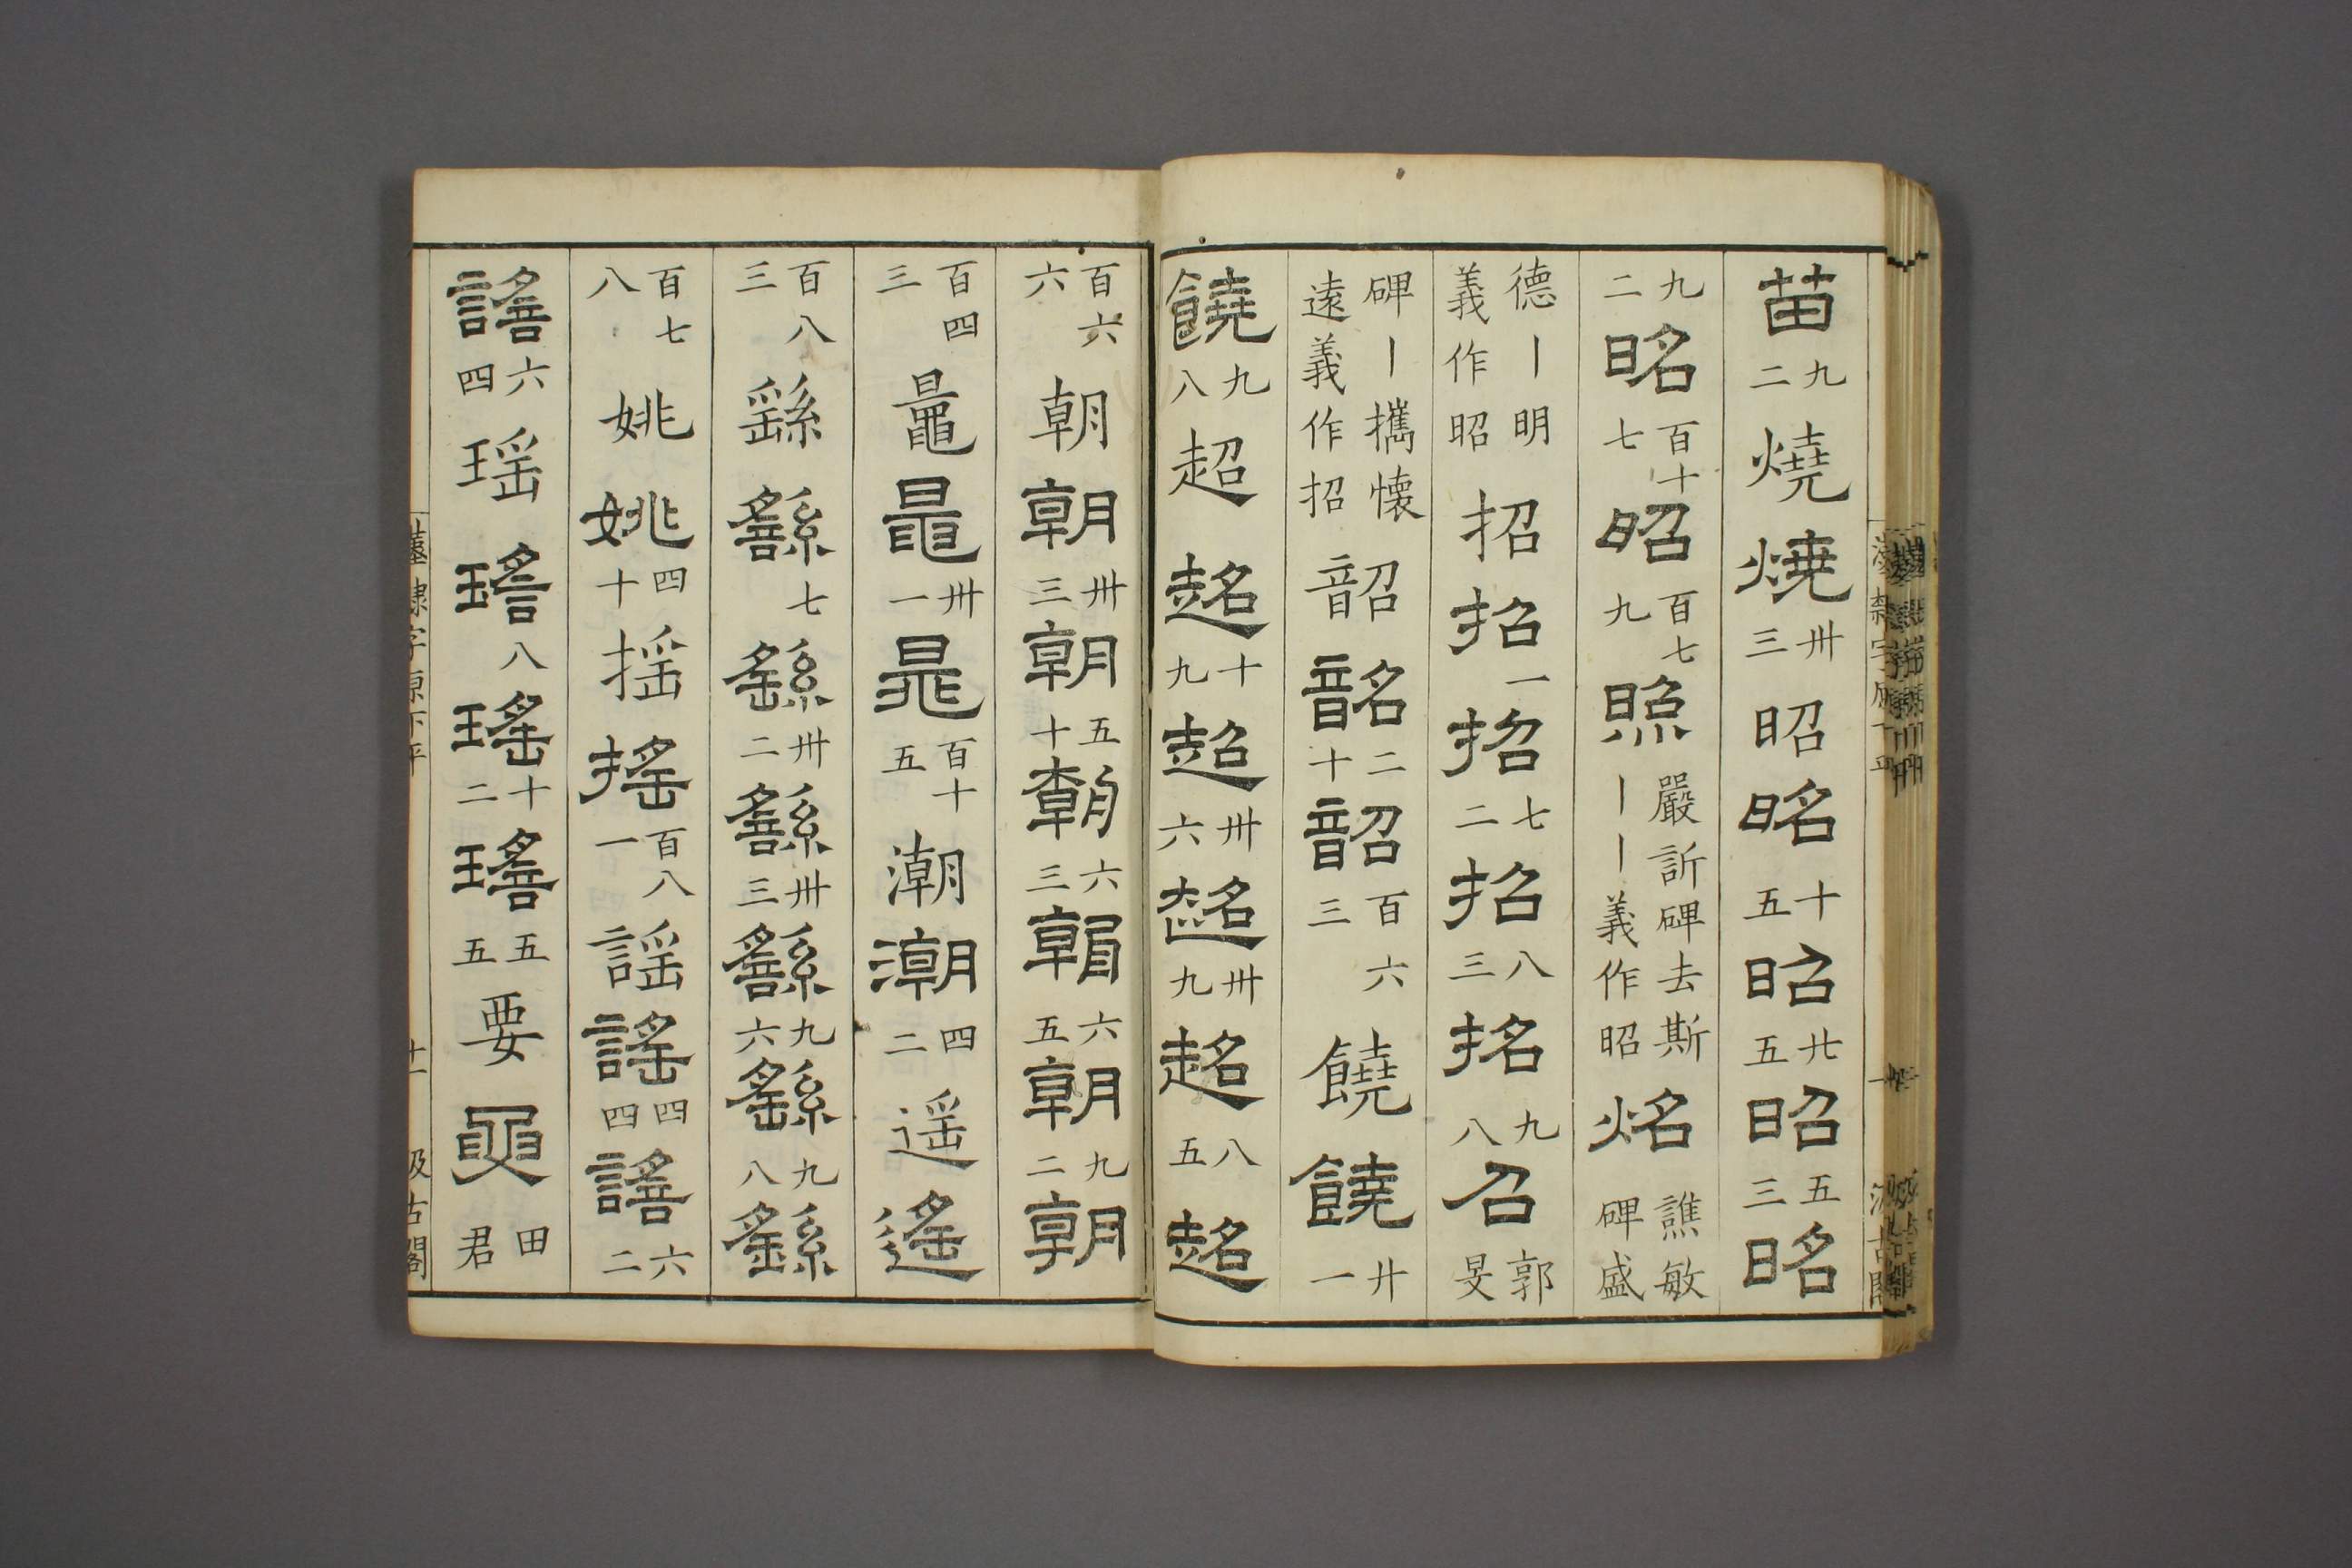 苗九二燒燒卅三昭昭十五昭廿五昭五三昭
九二昭百十七昭百七九照嚴訢碑去斯丨丨義作昭炤譙敏碑盛
德丨明義作昭招招一招七二招八三招九八召郭旻
碑丨攜懷遠義作招韶韶二十韶百六三饒饒廾一
饒九八超超十九超卅六超卅九超八五超
百六六朝朝卅三朝五十朝六三朝六五朝九二朝
百四三鼂鼂卅一鼂百十五潮潮四二遥遥
百八三繇繇七繇卅二繇卅三繇九六繇九八繇
百七八姚姚四十揺揺百八一謡謡四四謡六二
謡六四瑶瑶八瑶十二瑶五五要要田君
隷字原下平 十一 汲古閣